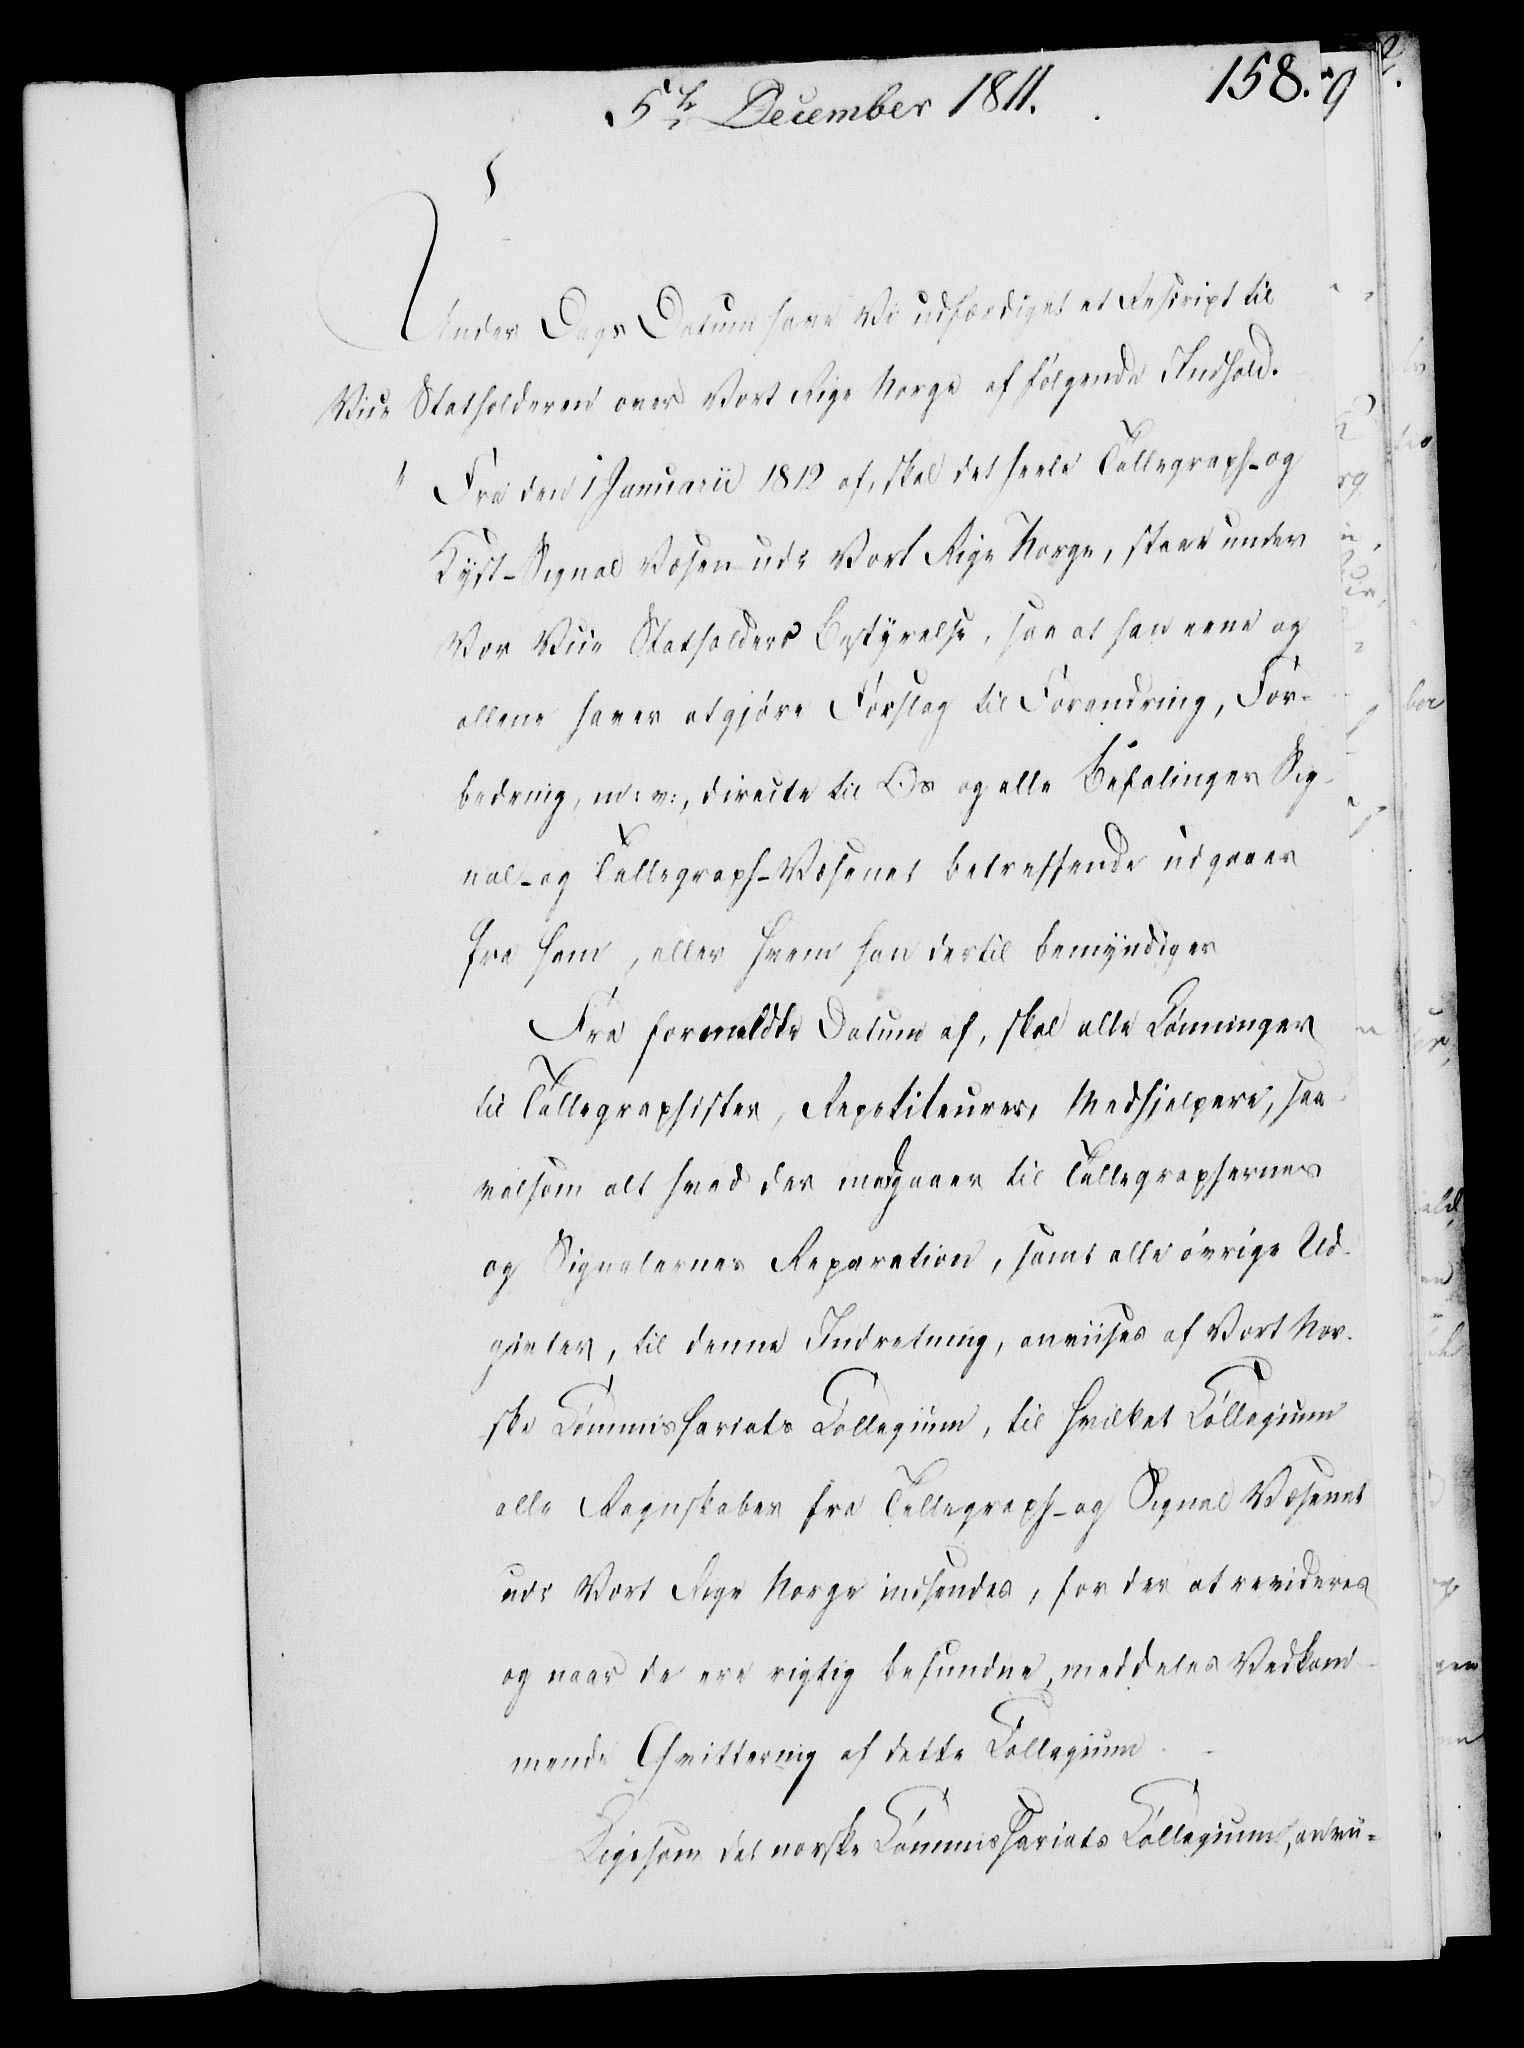 5te December 1811.
158.
Under Dags Datum have Vi udfærdiget et Rescript til
Vice Statholderen over Vort Rige Norge af følgende Indhold.
" Fra den 1 Januarii 1812 af, skal det heele Tellegraph- og
Kyst-Signal Væsen udi Vort Rige Norge, staae under
Vor Vice Statholders Bestyrelse, saa at han eene og
allene haver at gjøre Forslag til Forandring, For-
bedring, m: v:, directe til Os og alle Befalinger Sig-
nal- og Tellegraph-Væsenet betreffende udgaaer
fra ham, eller hvem han dertil bemyndiger
Fra formeldte Datum af, skal alle Lønninger
til Tellegraphister, Repetiteurer, Medhjelpere, saa-
velsom alt hvad der medgaaer til Tellegraphernes
og Signalernes Reparation, samt alle øvrige Ud-
givter, til denne Indretning, anviises af Vort Nor-
ske Commissariats Collegium, til hvilket Collegium
alle Regnskaber fra Tellegraph- og Signal Væsenet
udi Vort Rige Norge indsendes, for der at revideres
og naar de ere rigtig befundne, meddeles Vedkom-
mende Qvittering af dette Collegium
Ligesom det norske Commissariats Collegium, anvii-